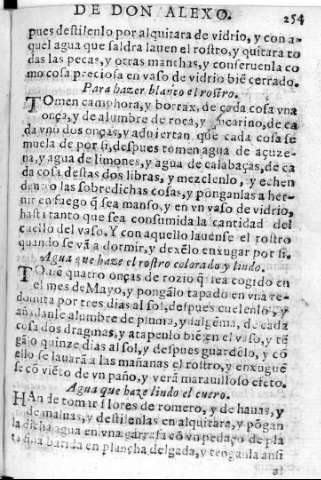 DE DON ALEXO. 254
pues destilenlo por alquitara de vidrio, y con a-
quel agua que saldra lauen el rostro, y quitara to
das las pecas, y otras manchas, y conseruenla co
mo cosa preciosa en vaso de vidrio biẽ cerrado.
Para hazer blanco el rostro.
TOmen camphora, y borrax, de cada cosa vna
onça, y de alumbre de roca, y de
da vno dos onças, y aduiertan que cada cosa se
muela de por si, despues tomen agua de açuze-
na, y agua de limones, y agua de calabaças, de ca
da cosa destas dos libras, y mezclenlo, y echen
dentro las sobredichas cosas, y ponganlas a her-
uir en fuego q̃ sea manso, y en vn vaso de vidrio,
hasta tanto que sea consumida la cantidad del
cuello del vaso. Y con aquello lauense el rostro
quando se vã a dormir, y dexẽlo enxugar por si.
Agua que haze el rostro colorado y lindo.
TOmẽ quatro onças de rozio q̃ sea cogido en
el mes de Mayo, y pongãlo tapado en vna re-
domita por tres dias al sol, despues cuelenlo, y
añadanle alumbre de pluma, y salgẽma, de cada
cosa dos dragmas, y atapenlo biẽ en el vaso, y tẽ
gãlo quinze dias al sol, y despues guardẽlo, y cõ
ello se lauarà a las mañanas el rostro, y enxuguẽ
se cõ viẽto de vn paño, y verà marauilloso efeto.
Agua que haze lindo el cuero.
HAn de tomar flores de romero, y de hauas, y
de maluas, y destilenlas en alquitara, y põgan
la dicha agua en vna garrafa cõ vn pedaço de pla
ta fina batida en plancha delgada, y tenganla ansi